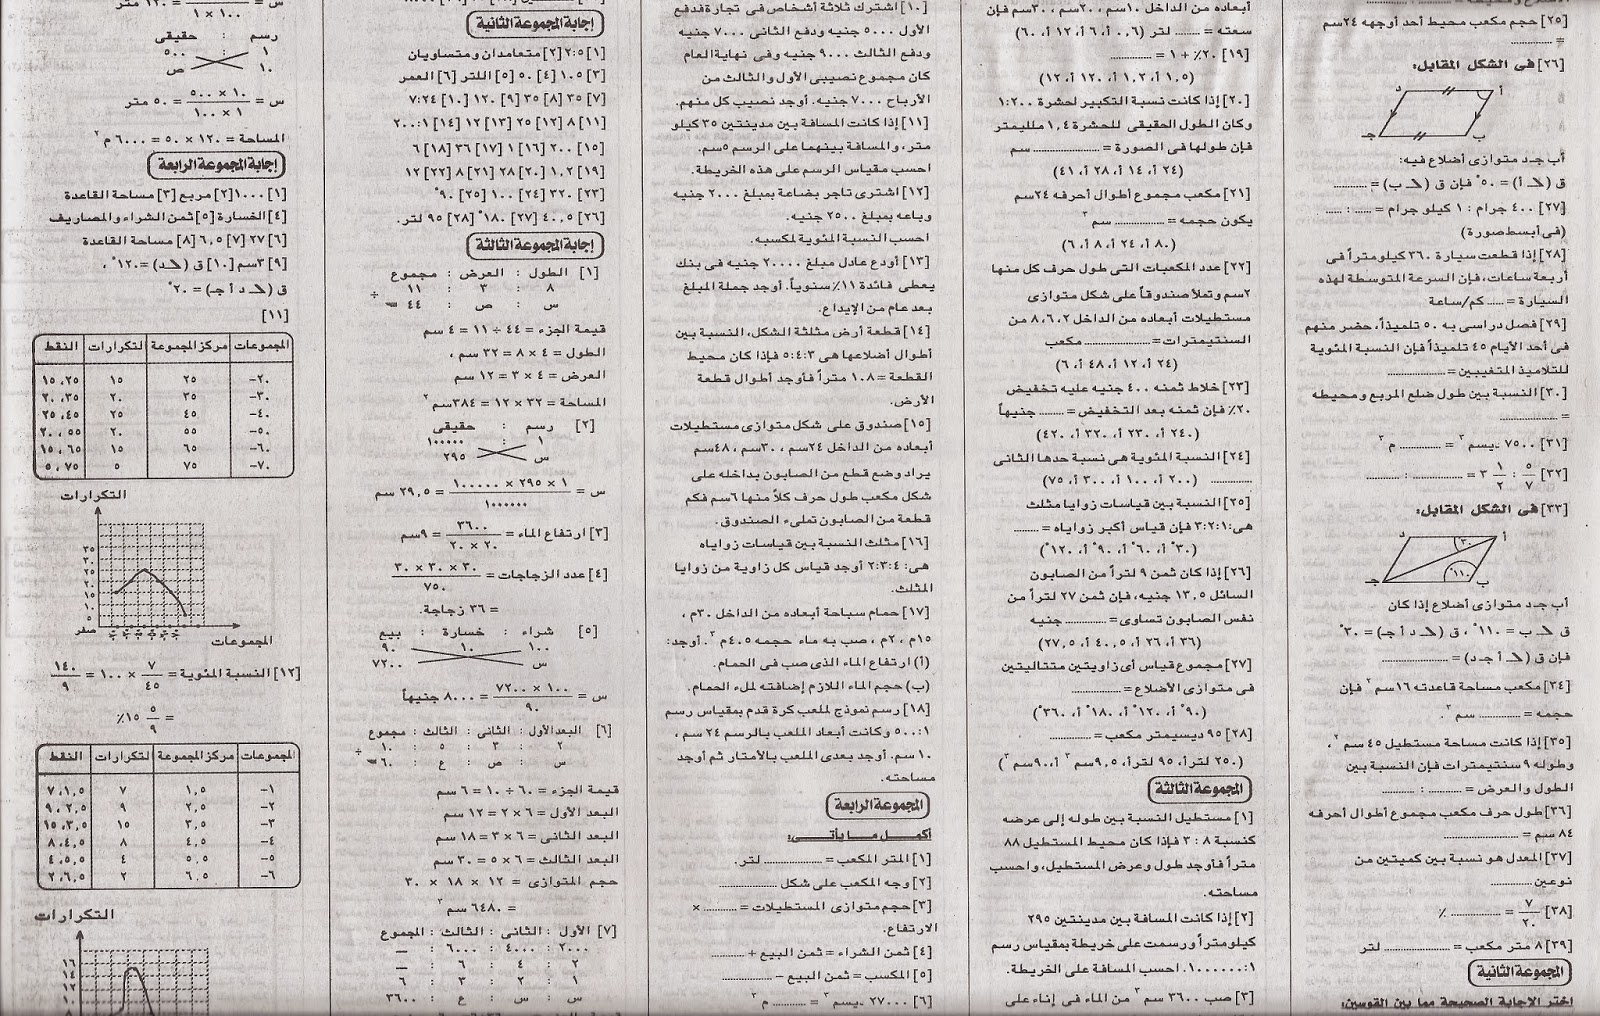 [٢٥] حجم مكعب محيط أحد أوجهه ٢٤سم
= ..........
[٢٦] فى الشكل المقابل:
د أ
جـ ب
أب جـ د متوازى أضلاع فيه:
ق (ك أ) = ٥٠° فإن ق (ك ب) = ..........
[٢٧] ٤٠٠ جرام : ١ كيلو جرام = ..... : .....
(فى أبسط صورة)
[٢٨] إذا قطعت سيارة ٣٦٠ كيلومتراً فى
أربعة ساعات، فإن السرعة المتوسطة لهذه
السيارة = ..... كم/ساعة
[٢٩] فصل دراسى به ٥٠ تلميذاً، حضر منهم
فى أحد الأيام ٤٥ تلميذاً فإن النسبة المئوية
للتلاميذ المتغيبين = ..........
[٣٠] النسبة بين طول ضلع المربع ومحيطه
= ..........
[٣١] ٧٥٠٠ ديسم٣ = .......... م٣
[٣٢] ٥/٧ : ١/٢ ٣ = .......... : ..........
[٣٣] فى الشكل المقابل:
د ٣٠ أ
جـ ١١٠ ب
أب جـ د متوازى أضلاع إذا كان
ق ك ب = ١١٠° ، ق (ك د أ جـ) = ٣٠°
فإن ق (ك أ جـ د) = ..........
[٣٤] مكعب مساحة قاعدته ١٦سم٢ فإن
حجمه = .......... سم٣.
[٣٥] إذا كانت مساحة مستطيل ٤٥سم٢،
وطوله ٩ سنتيمترات فإن النسبة بين
الطول والعرض = .......... : ..........
[٣٦] طول حرف مكعب مجموع أطوال أحرفه
٨٤ سم = ..........
[٣٧] المعدل هو نسبة بين كميتين من
نوعين ..........
[٣٨] ٧/٢٠ = .......... %
[٣٩] ٨ متر مكعب = .......... لتر
المجموعة الثانية
اختر الإجابة الصحيحة مما بين القوسين:
أبعاده من الداخل ١٠سم ، ٢٠سم ، ٣٠سم فإن
سعته = .......... لتر (٠,٦ أ، ٦ أ، ١٢ أ، ٦٠)
[١٩] ٢٠% + ١ = ..........
(١,٥ أ، ١,٢ أ، ١٢٠ أ، ١٢)
[٢٠] إذا كانت نسبة التكبير لحشرة ١:٢٠٠
وكان الطول الحقيقى للحشرة ١,٤ ملليمتر
فإن طولها فى الصورة = .......... سم
(٢٤ أ، ١٤ أ، ٢٨ أ، ٤١)
[٢١] مكعب مجموع أطوال أحرفه ٢٤سم
يكون حجمه = .......... سم٣
(٨٠ أ، ٢٤ أ، ٨ أ، ٦)
[٢٢] عدد المكعبات التى طول حرف كل منها
٢سم وتملأ صندوقاً على شكل متوازى
مستطيلات أبعاده من الداخل ٢، ٦، ٨ من
السنتيمترات = .......... مكعب
(٢٤ أ، ١٢ أ، ٤٨ أ، ٦)
[٢٣] خلاط ثمنه ٤٠٠ جنيه عليه تخفيض
٢٠% فإن ثمنه بعد التخفيض = ..... جنيهاً
(٢٤٠ أ، ٢٣٠ أ، ٣٢٠ أ، ٤٢٠)
[٢٤] النسبة المئوية هى نسبة حدها الثانى
.......... (٢٠٠ أ، ١٠٠ أ، ٣٠٠ أ، ٧٥)
[٢٥] النسبة بين قياسات زوايا مثلث
هى: ٣:٢:١ فإن قياس أكبر زواياه = .....
(٣٠° أ، ٦٠° أ، ٩٠° أ، ١٢٠°)
[٢٦] إذا كان ثمن ٩ لتراً من الصابون
السائل ١٣,٥ جنيه، فإن ثمن ٢٧ لتراً من
نفس الصابون تساوى = .......... جنيه
(٣٦ أ، ٢٦ أ، ٤٠,٥ أ، ٢٧,٥)
[٢٧] مجموع قياس أى زاويتين متتاليتين
فى متوازى الأضلاع = ..........
(٩٠° أ، ١٢٠° أ، ١٨٠° أ، ٣٦٠°)
[٢٨] ٩٥ ديسيمتر مكعب = ..........
(٢٥٠ لتراً، ٩٥ لتراً، ٩,٥سم٣ أ، ٩٠٠سم٣)
المجموعة الثالثة
[١] مستطيل النسبة بين طوله إلى عرضه
كنسبة ٨ : ٣ فإذا كان محيط المستطيل ٨٨
متراً فأوجد طول وعرض المستطيل، واحسب
مساحته.
[٢] إذا كانت المسافة بين مدينتين ٢٩٥
كيلومتراً ورسمت على خريطة بمقياس رسم
١:١٠٠٠٠٠٠. احسب المسافة على الخريطة.
[٣] صب ٣٦٠٠ سم٣ من الماء فى إناء على
[١٠] اشترك ثلاثة أشخاص فى تجارة فدفع
الأول ٥٠٠٠ جنيه ودفع الثانى ٧٠٠٠ جنيه
ودفع الثالث ٩٠٠٠ جنيه وفى نهاية العام
كان مجموع نصيبى الأول والثالث من
الأرباح ٧٠٠٠ جنيه. أوجد نصيب كل منهم.
[١١] إذا كانت المسافة بين مدينتين ٣٥ كيلو
متر، والمسافة بينهما على الرسم ٥سم.
احسب مقياس الرسم على هذه الخريطة.
[١٢] اشترى تاجر بضاعة بمبلغ ٢٠٠٠ جنيه
وباعه بمبلغ ٢٥٠٠ جنيه.
احسب النسبة المئوية لمكسبه.
[١٣] أودع عادل مبلغ ٢٠٠٠٠ جنيه فى بنك
يعطى فائدة ١١% سنوياً. أوجد جملة المبلغ
بعد عام من الإيداع.
[١٤] قطعة أرض مثلثة الشكل، النسبة بين
أطوال أضلاعها هى ٥:٤:٣ فإذا كان محيط
القطعة = ١٠٨ متراً فأوجد أطوال قطعة
الأرض.
[١٥] صندوق على شكل متوازى مستطيلات
أبعاده من الداخل ٢٤سم ، ٣٠سم ، ٤٨سم
يراد وضع قطع من الصابون بداخله على
شكل مكعب طول حرف كلاً منها ٦سم فكم
قطعة من الصابون تملىء الصندوق.
[١٦] مثلث النسبة بين قياسات زواياه
هى: ٢:٣:٤ أوجد قياس كل زاوية من زوايا
المثلث.
[١٧] حمام سباحة أبعاده من الداخل ٣٠م ،
١٥م ، ٢م ، صب به ماء حجمه ٤٠٥م٣. أوجد:
(أ) ارتفاع الماء الذى صب فى الحمام.
(ب) حجم الماء اللازم إضافته لملء الحمام.
[١٨] رسم نموذج لملعب كرة قدم بمقياس رسم
١:٥٠٠ وكانت أبعاد الملعب بالرسم ٢٤ سم ،
١٠ سم. أوجد بعدى الملعب بالأمتار ثم أوجد
مساحته.
المجموعة الرابعة
أكمل ما يأتى:
[١] المتر المكعب = .......... لتر.
[٢] وجه المكعب على شكل ..........
[٣] حجم متوازى المستطيلات = .......... ×
الارتفاع.
[٤] ثمن الشراء = ثمن البيع + ..........
[٥] المكسب = ثمن البيع - ..........
[٦] ٢٧٠٠٠ ديسم٣ = .......... م٣
إجابة المجموعة الثانية
[١] ٢:٥ [٢] متعامدان ومتساويان
[٣] ١٠٥ [٤] ٥٠ [٥] اللتر [٦] العمر
[٧] ٣٥ [٨] ٣٥ [٩] ١٢٠ [١٠] ٧:٢٤
[١١] ٨ [١٢] ٢٥ [١٣] ١٢ [١٤] ٢٠٠:١
[١٥] ٢٠٠ [١٦] ١ [١٧] ٣٦ [١٨] ٦
[١٩] ١,٢ [٢٠] ٢٨ [٢١] ٨ [٢٢] ١٢
[٢٣] ٣٢٠ [٢٤] ١٠٠ [٢٥] ٩٠°
[٢٦] ٤٠,٥ [٢٧] ١٨٠° [٢٨] ٩٥ لتر.
إجابة المجموعة الثالثة
[١] الطول : العرض : مجموع
٨ : ٣ : ١١
س : ص : ٤٤
قيمة الجزء = ٤٤ ÷ ١١ = ٤ سم
الطول = ٤ × ٨ = ٣٢ سم ،
العرض = ٤ × ٣ = ١٢ سم
المساحة = ٣٢ × ١٢ = ٣٨٤سم٢
[٢] رسم : حقيقى
١ : ١٠٠٠٠٠٠
س ٢٩٥
س = ١ × ٢٩٥ × ١٠٠٠٠٠ / ١٠٠٠٠٠٠ = ٢٩,٥ سم
[٣] ارتفاع الماء = ٣٦٠٠ / ٢٠ × ٢٠ = ٩سم
[٤] عدد الزجاجات = ٣٠ × ٣٠ × ٣٠ / ٧٥٠
= ٣٦ زجاجة.
[٥] شراء : خسارة : بيع
١٠٠ ١٠ ٩٠
س ٧٢٠٠
س = ١٠٠ × ٧٢٠٠ / ٩٠ = ٨٠٠٠ جنيهاً
[٦] البعد الأول : الثانى : الثالث : مجموع
٢ : ٣ : ٥ : ١٠
س : ص : ع : ٦٠
قيمة الجزء = ٦٠ ÷ ١٠ = ٦ سم
البعد الأول = ٦ × ٢ = ١٢ سم
البعد الثانى = ٦ × ٣ = ١٨ سم
البعد الثالث = ٦ × ٥ = ٣٠ سم
حجم المتوازى = ١٢ × ١٨ × ٣٠
= ٦٤٨٠ سم٣
[٧] الأول : الثانى : الثالث : المجموع
٢٠٠٠ : ٤٠٠٠ : ٦٠٠٠ : —
٢ : ٤ : ٦ : —
١ : ٢ : ٣ : ٦
س : س : ع : ٣٦٠٠
س = ١٠٠ × ١
رسم : حقيقى
١ ٥٠٠
١٠ ص
س = ١٠ × ٥٠٠ / ١٠٠ × ١ = ٥٠ متر
المساحة = ١٢٠ × ٥٠ = ٦٠٠٠ م٢
إجابة المجموعة الرابعة
[١] ١٠٠٠ [٢] مربع [٣] مساحة القاعدة
[٤] الخسارة [٥] ثمن الشراء والمصاريف
[٦] ٢٧ [٧] ٦,٥ [٨] مساحة القاعدة
[٩] ٣سم [١٠] ق (ك د) = ١٢٠° ،
ق (ك د أ جـ) = ٢٠°
[١١]
المجموعات مركز المجموعة التكرارات النقط
٢٠- ٢٥ ١٥ ٢٥، ١٥
٣٠- ٣٥ ٢٠ ٣٥، ٢٠
٤٠- ٤٥ ٢٥ ٤٥، ٢٥
٥٠- ٥٥ ٢٠ ٥٥، ٢٠
٦٠- ٦٥ ١٥ ٦٥، ١٥
٧٠- ٧٥ ٥ ٧٥، ٥
التكرارات
٣٥
٣٠
٢٥
٢٠
١٥
١٠
٥
صفر
المجموعات
[١٢] النسبة المئوية = ٧/٤٥ × ١٠٠ = ١٤٠/٩
= ٥/٩ ١٥%
المجموعات مركز المجموعة التكرارات النقط
١- ١,٥ ٧ ١,٥، ٧
٢- ٢,٥ ٩ ٢,٥، ٩
٣- ٣,٥ ١٥ ٣,٥، ١٥
٤- ٤,٥ ٨ ٤,٥، ٨
٥- ٥,٥ ٤ ٥,٥، ٤
٦- ٦,٥ ٢ ٦,٥، ٢
التكرارات
١٦
١٤
١٢
١٠
٨